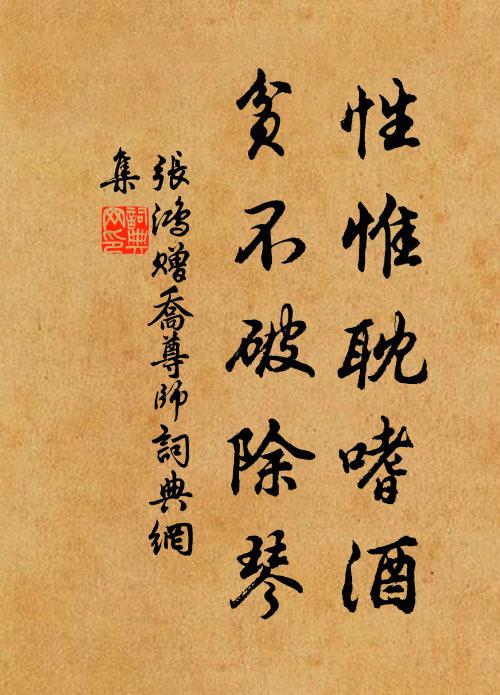 性惟耽嗜酒
貧不破除琴
張鴻贈喬尊師詞典網
集
詞典
網印